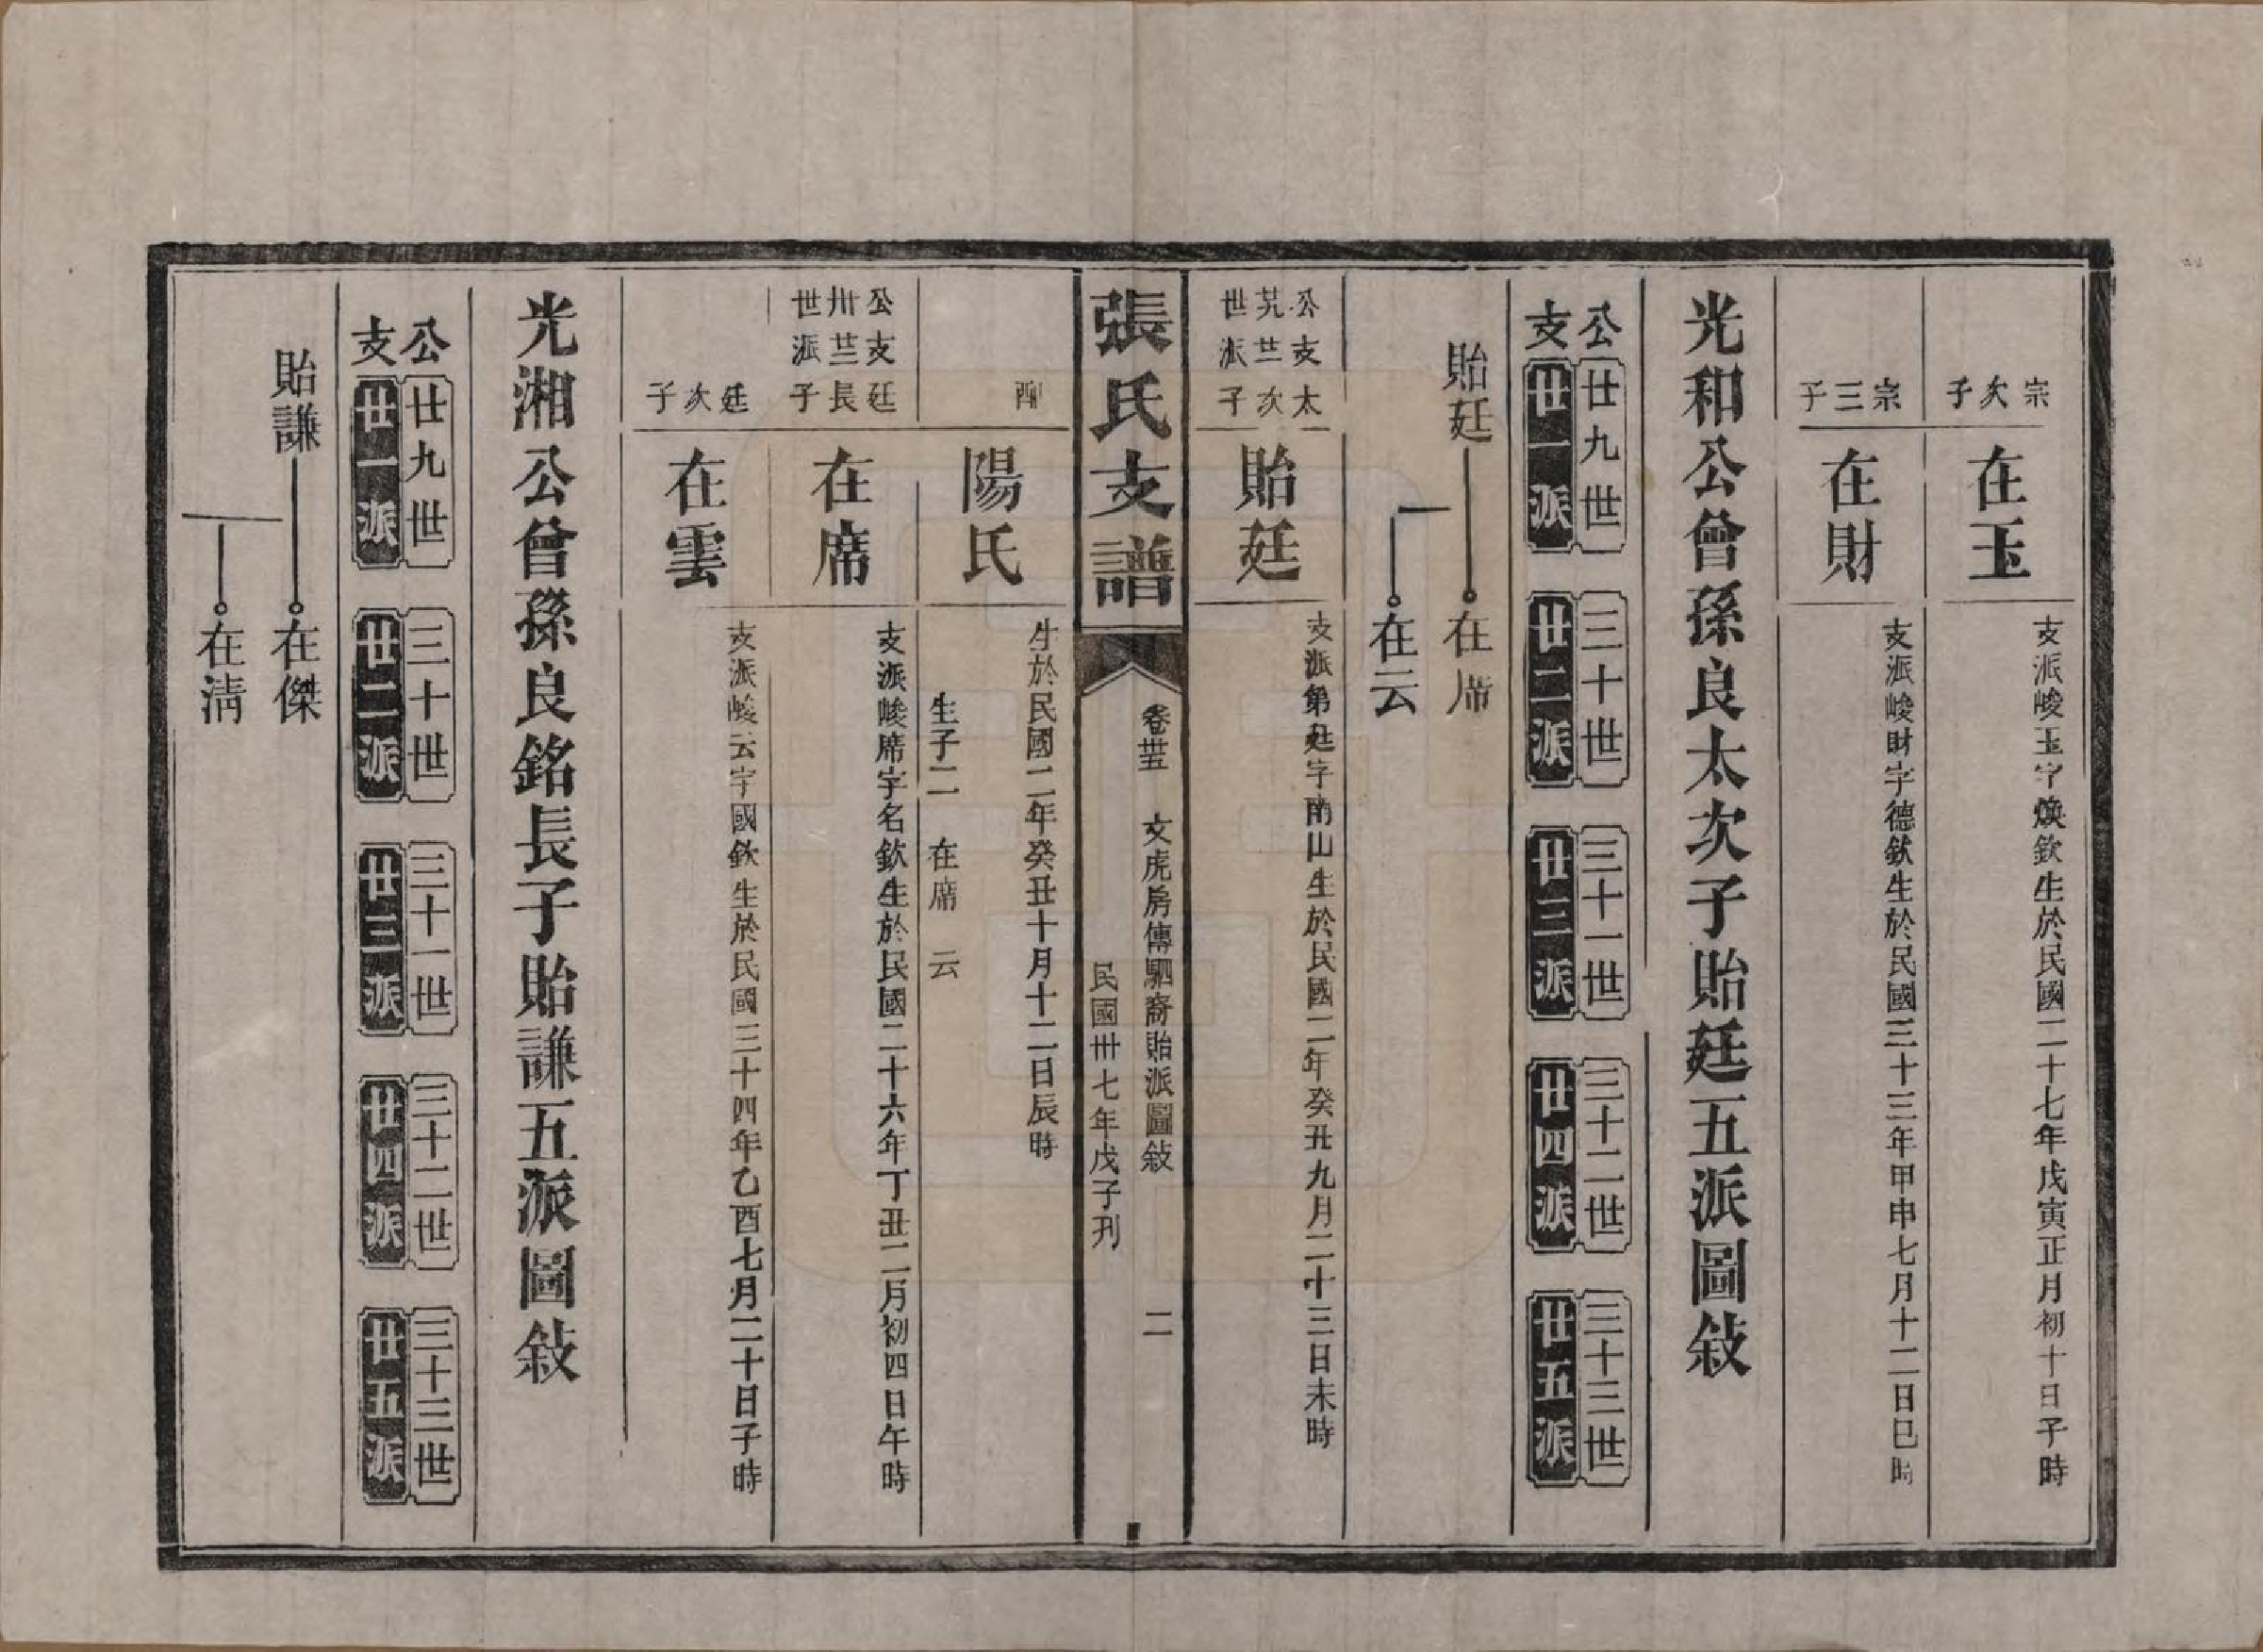 宗次子
在玉
支派峻玉字煥欽生於民國二十七年戊寅正月初十日子時
宗三子
在財
支派峻財字德欽生於民國三十三年甲申七月十二日巳時
光和公曾孫良太次子貽廷五派圖敍
公支
廿九世 廿一派
三十世 廿二派
三十一世 廿三派
三十二世 廿四派
三十三世 廿五派
貽廷 在席
在云
公支太
次
世派子
貽廷
支派第廷字南山生於民國二年癸丑九月二十三日未時
張氏支譜
卷卅五 文虎房傳駟裔貽派圖敍 二
民國卅七年戊子刊
配
陽氏
生於民國二年癸丑十月十二日辰時
生子二 在席 云
公支廷
卅 長
世派子
在席
支派峻席字名欽生於民國二十六年丁丑二月初四日午時
廷次子
在雲
支派峻云字國欽生於民國三十四年乙酉七月二十日子時
光湘公曾孫良銘長子貽謙五派圖敍
公支
廿九世 廿一派
三十世 廿二派
三十一世 廿三派
三十二世 廿四派
三十三世 廿五派
貽謙 在傑
在清